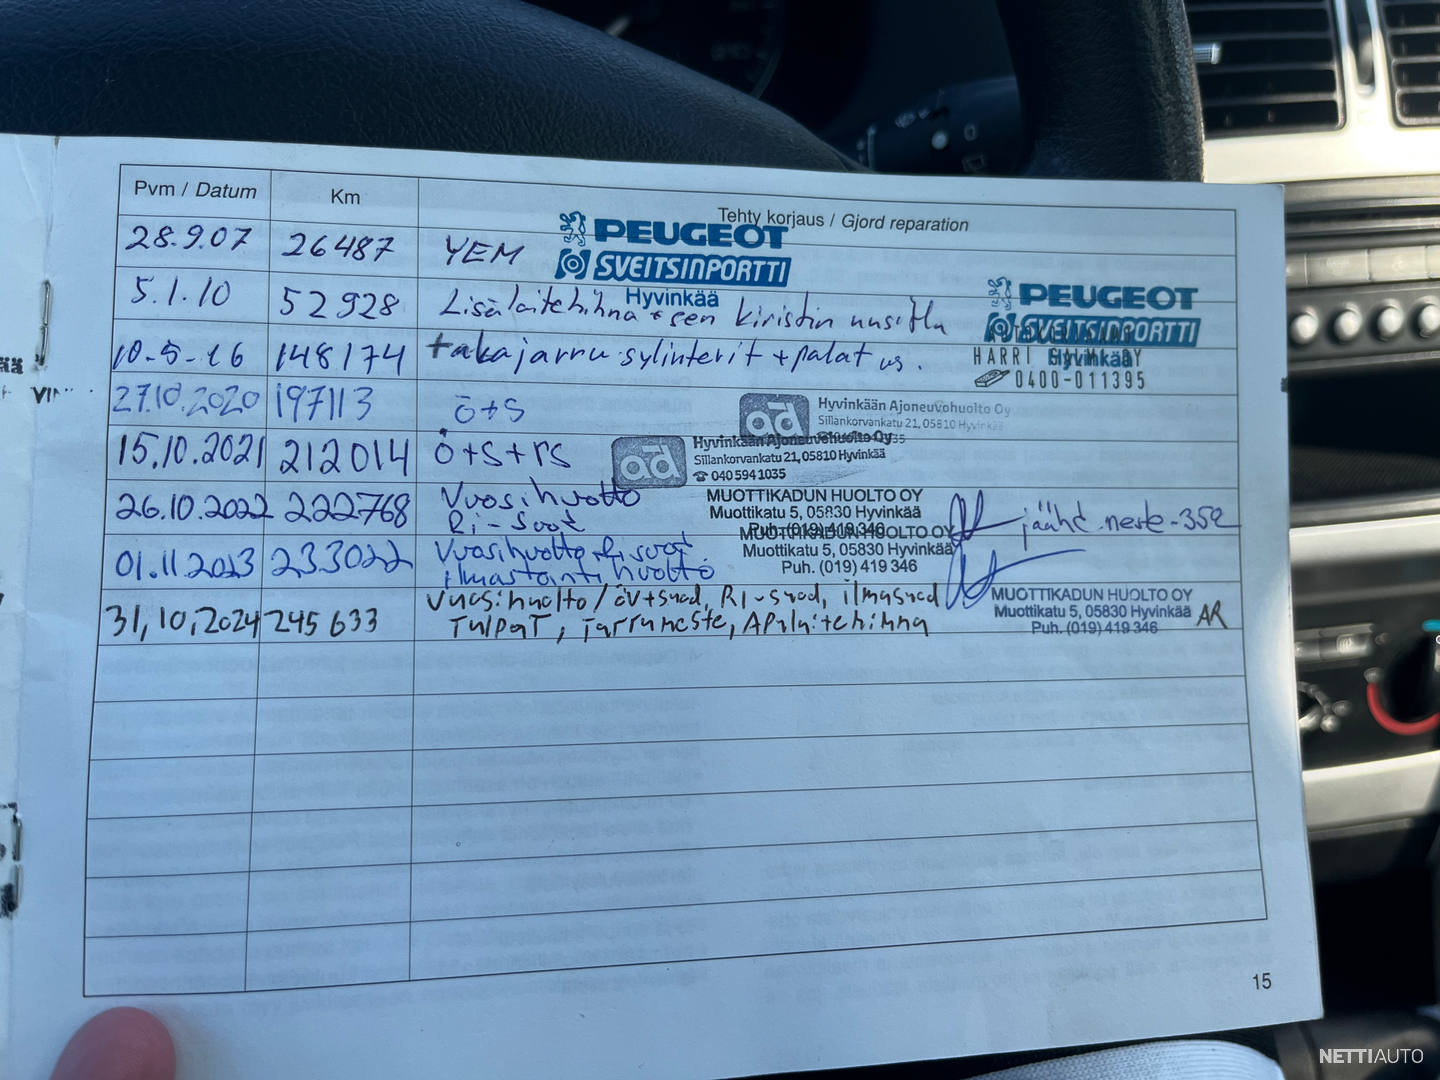 Pvm / Datum Km Tehty korjaus / Gjord reparation
28.9.07 26487 YEM PEUGEOT
SVEITSINPORTTI
Hyvinkää
5.1.10 52928 Lisälaitehihna + sen kiristin uusittu PEUGEOT
SVEITSINPORTTI
Hyvinkää
10-5-16 148174 takajarrusylinterit + palat us.
HARRI
0400-011395
27.10.2020 197113 ö+s Hyvinkään Ajoneuvohuolto Oy
Sillankorvankatu 21, 05810 Hyvinkää
15.10.2021 212014 ö+s+rs ad Hyvinkään Ajoneuvohuolto Oy
Sillankorvankatu 21, 05810 Hyvinkää
040 594 1035
26.10.2022 222768 Vuosihuolto MUOTTIKADUN HUOLTO OY
Ri-suod Muottikatu 5, 05830 Hyvinkää jäähd.neste -352
Puh. (019) 419 346
01.11.2023 233022 Vuosihuolto, Ri suod. MUOTTIKADUN HUOLTO OY
ilmastointihuolto Muottikatu 5, 05830 Hyvinkää
Puh. (019) 419 346
31,10,2024 245633 Vuosihuolto/öv+suod, RI-suod, ilmasuod MUOTTIKADUN HUOLTO OY
Tulpat, Jarruneste, Apulaitehihna Muottikatu 5, 05830 Hyvinkää AR
Puh. (019) 419 346
15
NETTIAUTO